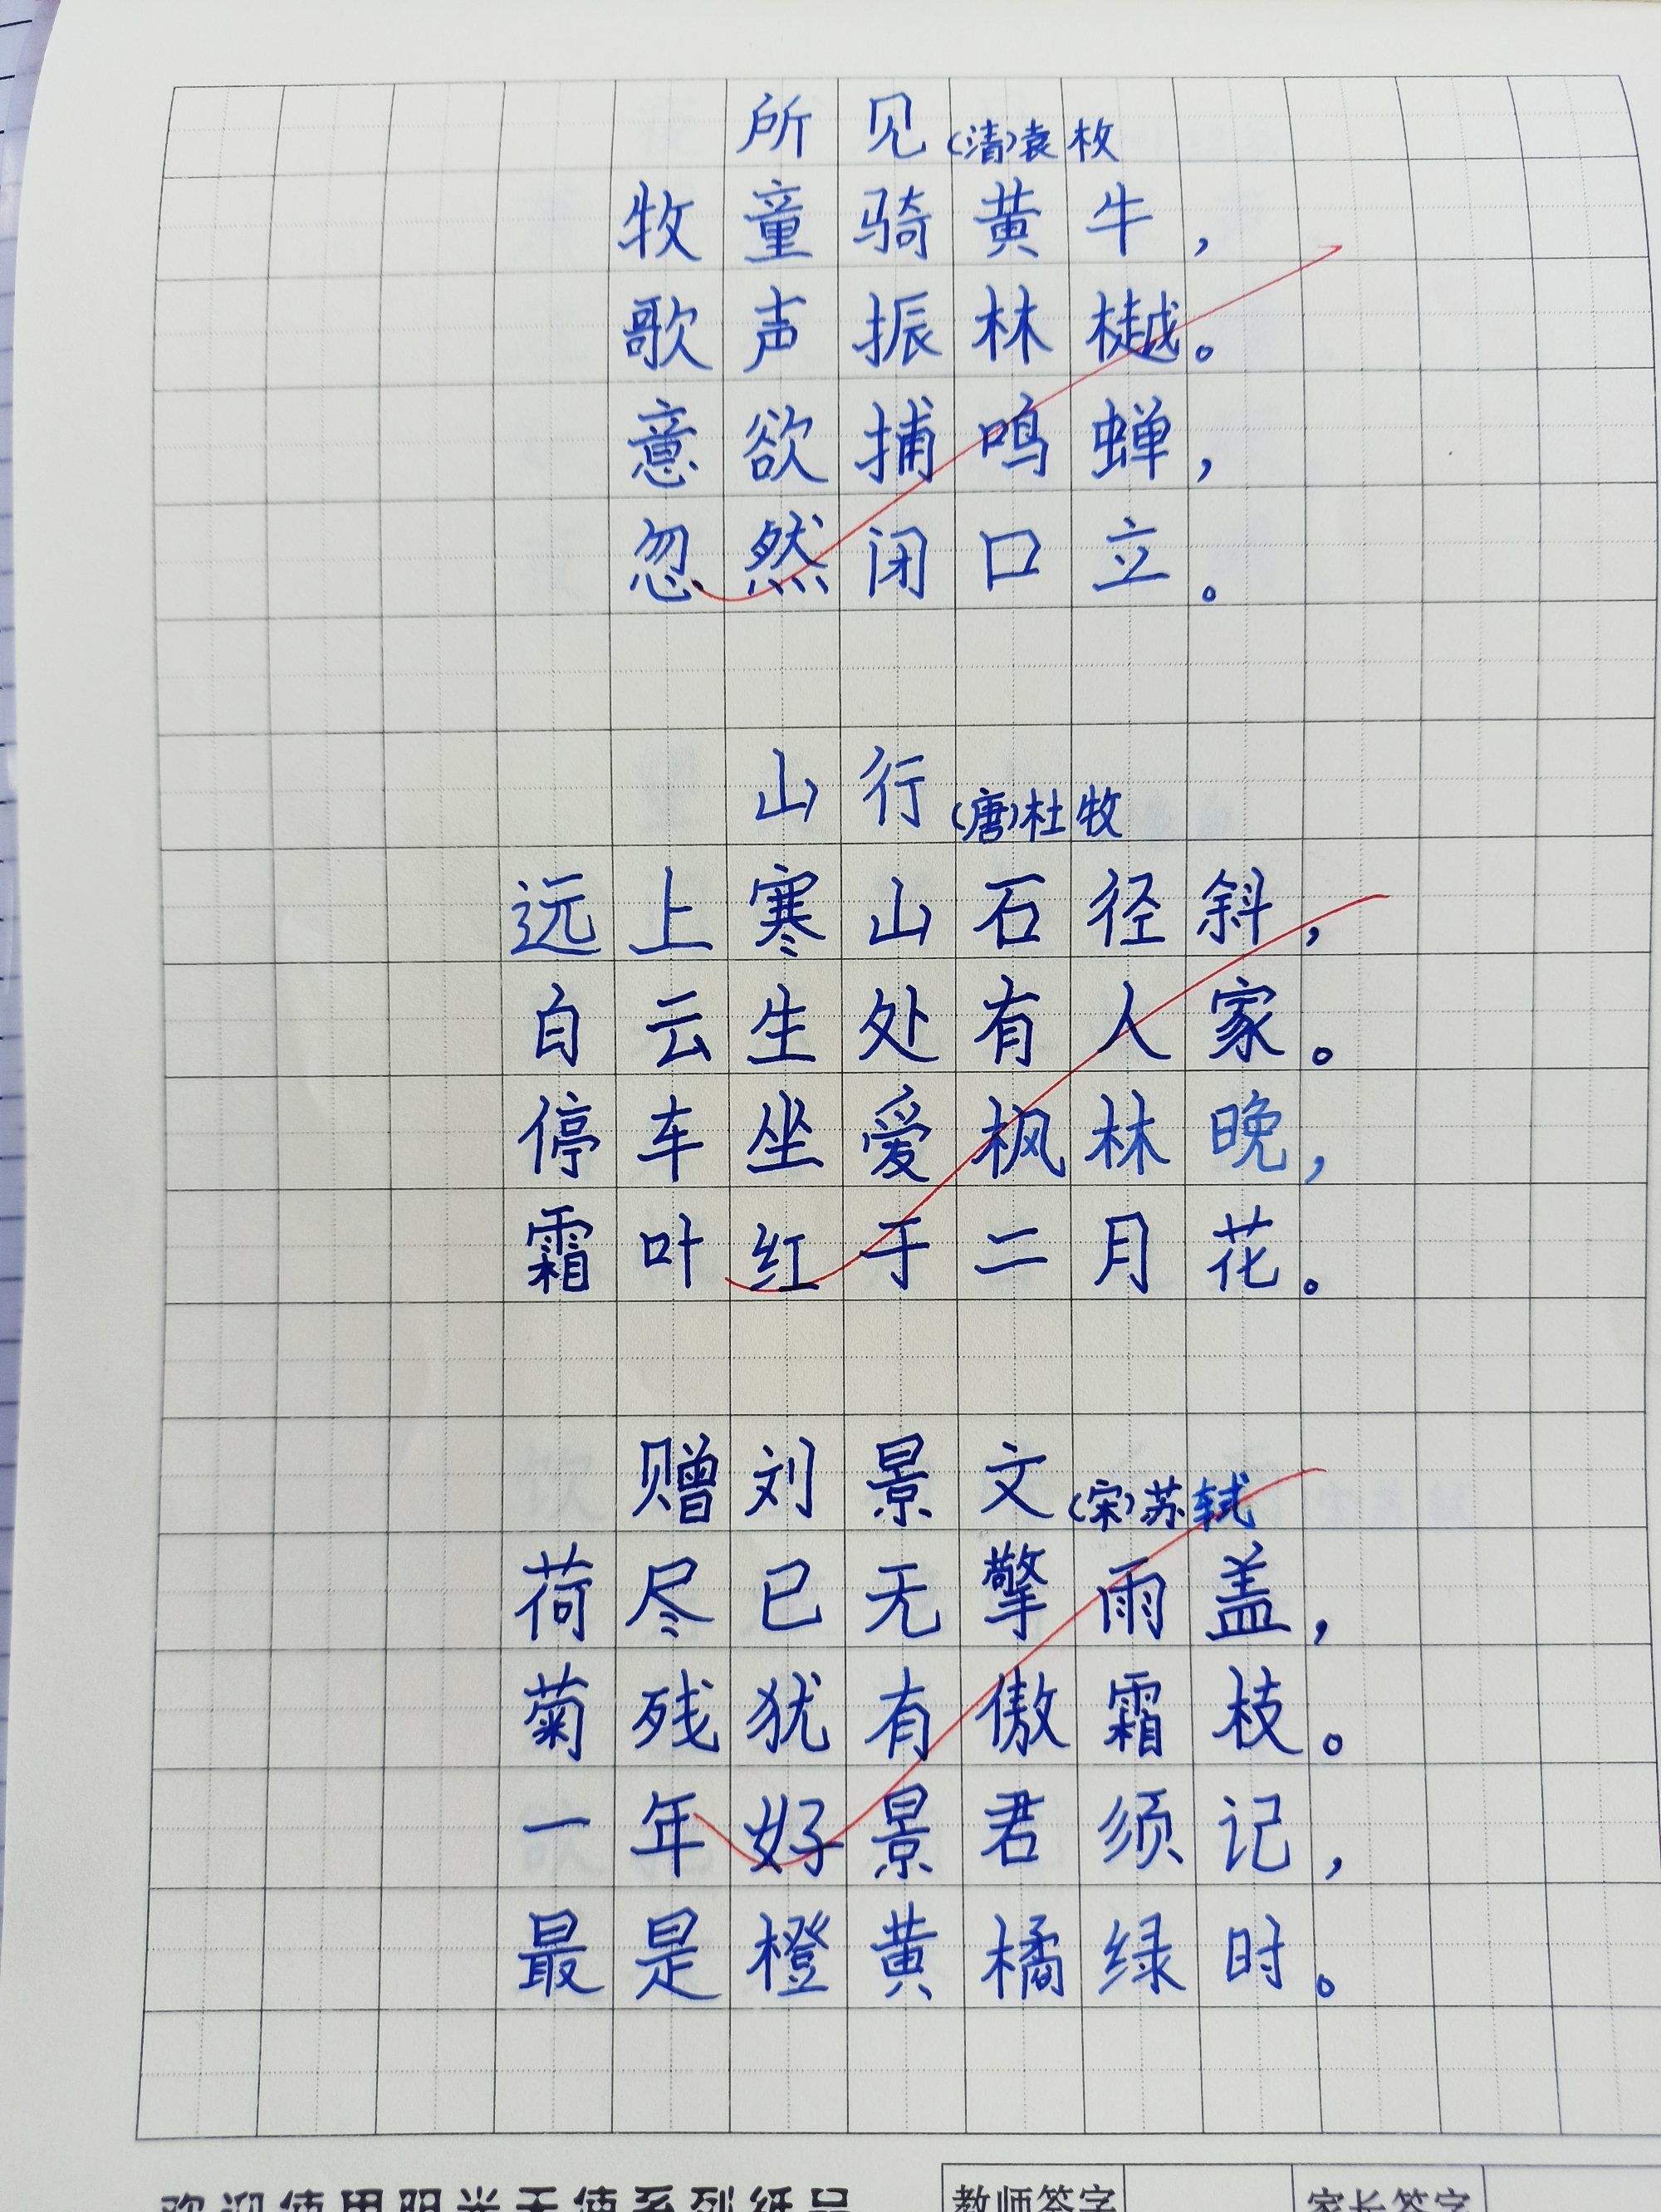 所见(清)袁枚
牧童骑黄牛，
歌声振林樾。
意欲捕鸣蝉，
忽然闭口立。
山行(唐)杜牧
远上寒山石径斜，
白云生处有人家。
停车坐爱枫林晚，
霜叶红于二月花。
赠刘景文(宋)苏轼
荷尽已无擎雨盖，
菊残犹有傲霜枝。
一年好景君须记，
最是橙黄橘绿时。
教师签字
家长签字